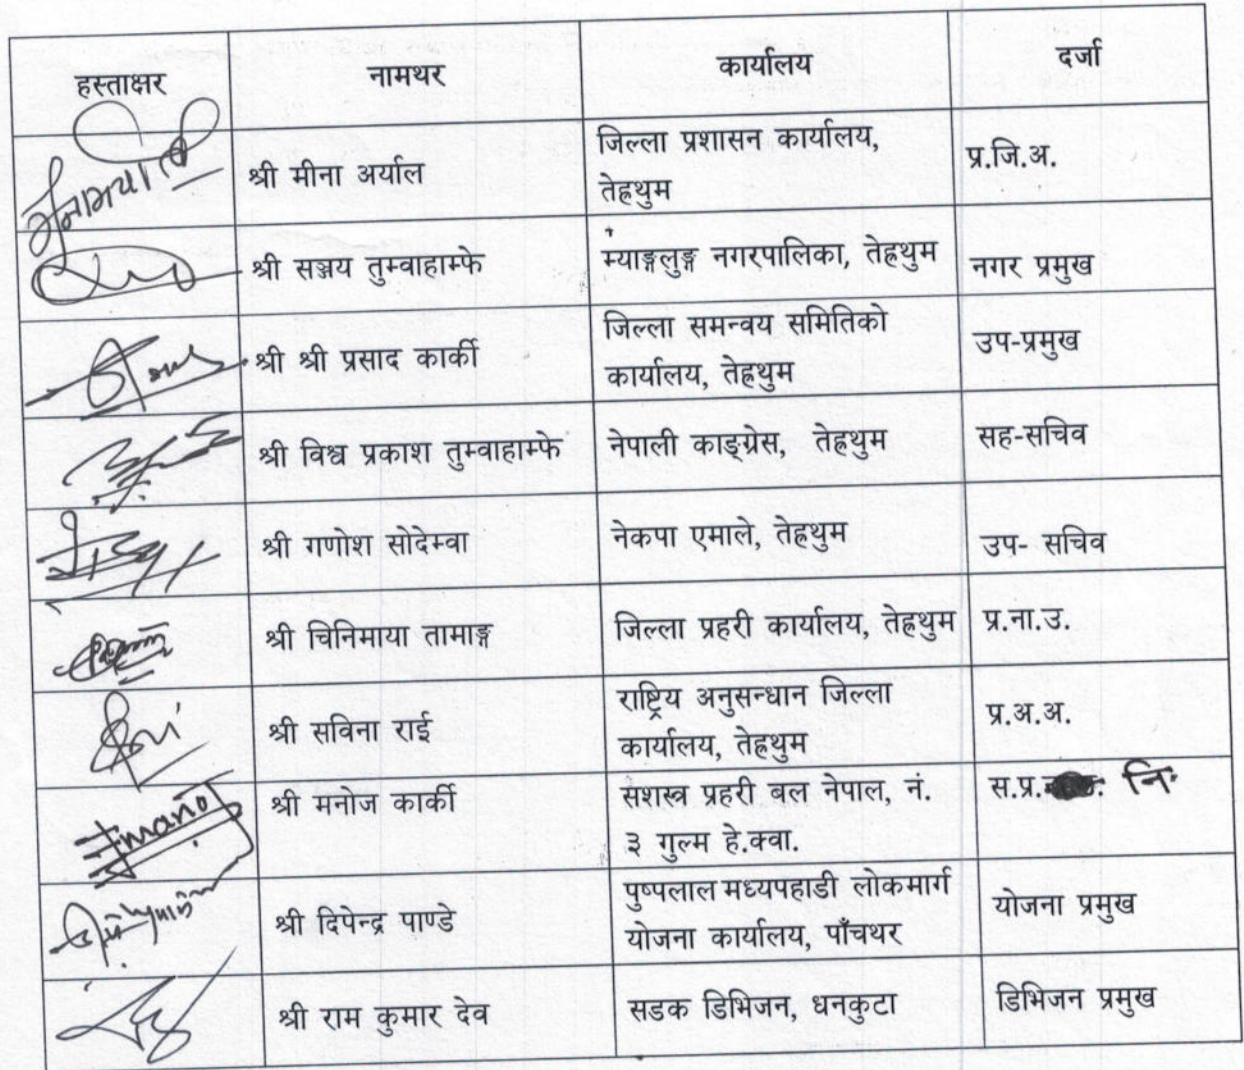 हस्ताक्षर नामथर कार्यालय दर्जा
श्री मीना अर्याल जिल्ला प्रशासन कार्यालय, प्र.जि.अ.
तेह्रथुम
श्री सञ्जय तुम्वाहाम्फे म्याङ्गलुङ्ग नगरपालिका, तेह्रथुम नगर प्रमुख
श्री श्री प्रसाद कार्की जिल्ला समन्वय समितिको उप-प्रमुख
कार्यालय, तेह्रथुम
श्री विश्व प्रकाश तुम्वाहाम्फे नेपाली काङ्ग्रेस, तेह्रथुम सह-सचिव
श्री गणोश सोदेम्वा नेकपा एमाले, तेह्रथुम उप- सचिव
श्री चिनिमाया तामाङ्ग जिल्ला प्रहरी कार्यालय, तेह्रथुम प्र.ना.उ.
श्री सविना राई राष्ट्रिय अनुसन्धान जिल्ला प्र.अ.अ.
कार्यालय, तेह्रथुम
श्री मनोज कार्की सशस्त्र प्रहरी बल नेपाल, नं. स.प्र. नि.
३ गुल्म हे.क्वा.
श्री दिपेन्द्र पाण्डे पुष्पलाल मध्यपहाडी लोकमार्ग योजना प्रमुख
योजना कार्यालय, पाँचथर
श्री राम कुमार देव सडक डिभिजन, धनकुटा डिभिजन प्रमुख